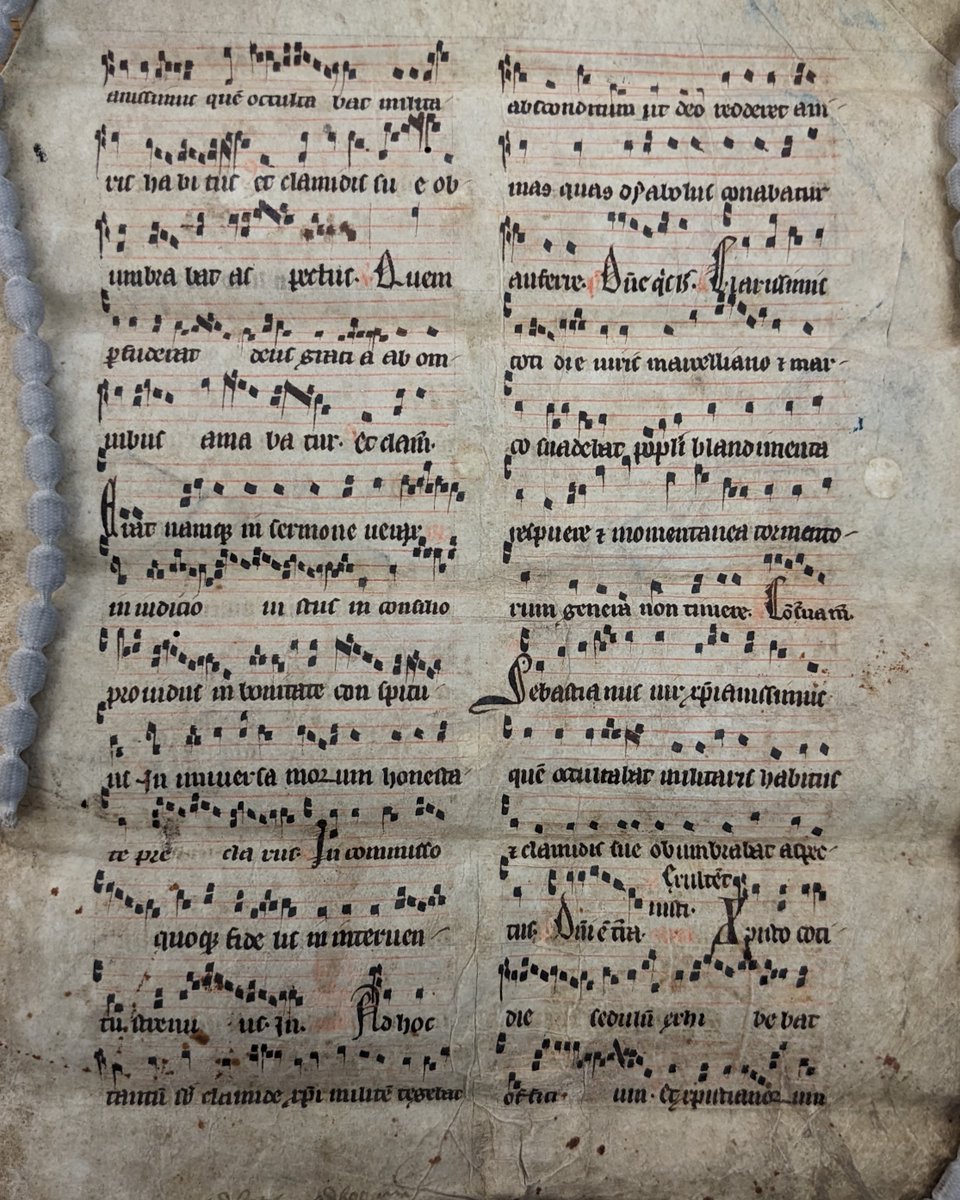 anissimus quē occulta bat milita
ris ha bi tus et clamidis su e ob
umbra bat as pectus. Quem
ꝑfuderat deus grati a ab om
nibus ama ba tur. et clam̄.
Erat namqꝫ in sermone verax
in iudicio in stus in consilio
prouidus in bonitate con spicu
us In uniuersa morum honesta
te pre cla rus. In commisso
quoqꝫ fide lis in interuen
tu. strenu us. In. Ad hoc
tantū sb̄ clamide xp̄i militē tegebat
absconditum ut deo redderet ani
mas quas dyabolus conabatur
auferre. Dn̄e q̇s. Clarissimis
toti die uiris marcelliano ⁊ mar
co suadebat blandimenta
respuere ⁊ momentanea tormento
rum genera non timere.
Sebastianus uir xp̄ianissimus
quē occultabat militaris habitus
⁊ clamidis sue obumbrabat aspec
tus. Xpisto coti
die sedulū exhi be bat
offici um. et xpistianorum